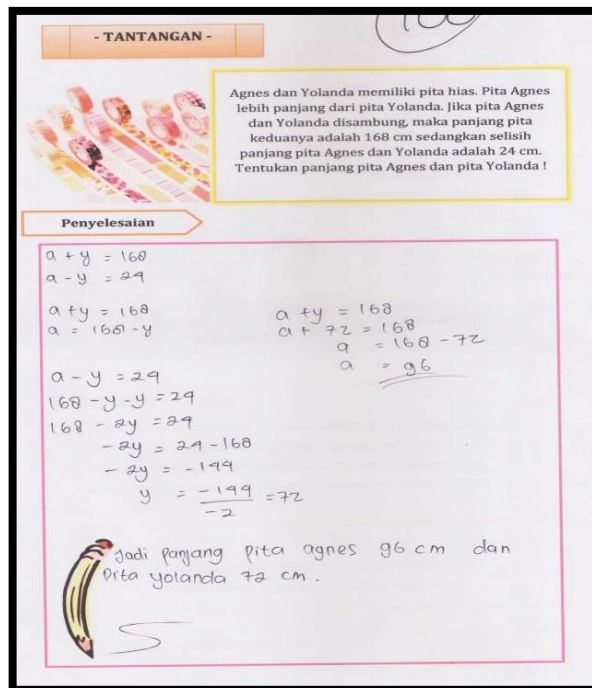 - TANTANGAN -
Agnes dan Yolanda memiliki pita hias. Pita Agnes
lebih panjang dari pita Yolanda. Jika pita Agnes
dan Yolanda disambung, maka panjang pita
keduanya adalah 168 cm sedangkan selisih
panjang pita Agnes dan Yolanda adalah 24 cm.
Tentukan panjang pita Agnes dan pita Yolanda !
Penyelesaian
a + y = 168
a - y = 24
a + y = 168
a = 168 - y
a - y = 24
168 - y - y = 24
168 - 2y = 24
- 2y = 24 - 168
- 2y = - 144
y = -144 / -2 = 72
a + y = 168
a + 72 = 168
a = 168 - 72
a = 96
Jadi panjang pita agnes 96 cm dan
pita yolanda 72 cm.